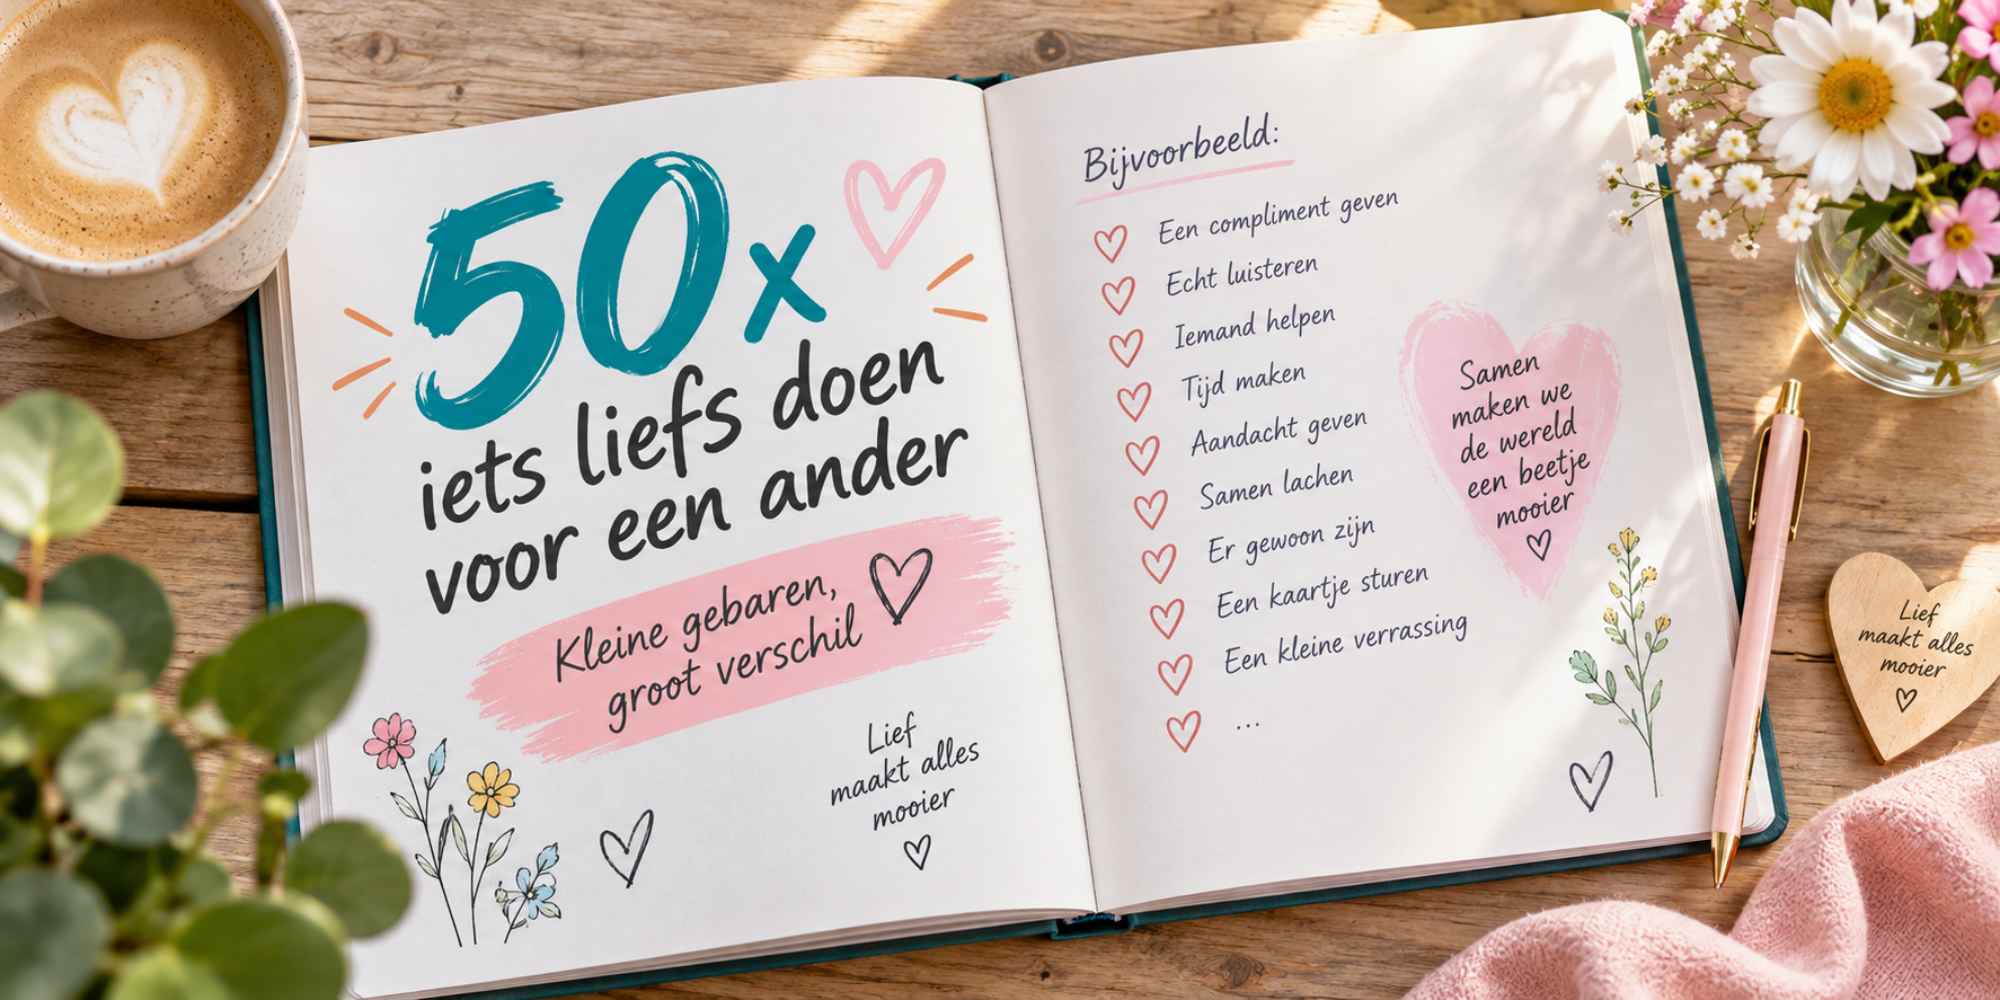 50x
iets liefs doen
voor een ander
Kleine gebaren,
groot verschil
Lief
maakt alles
mooier
Bijvoorbeeld:
Een compliment geven
Echt luisteren
Iemand helpen
Tijd maken
Aandacht geven
Samen lachen
Er gewoon zijn
Een kaartje sturen
Een kleine verrassing
...
Samen
maken we
de wereld
een beetje
mooier
Lief
maakt alles
mooier